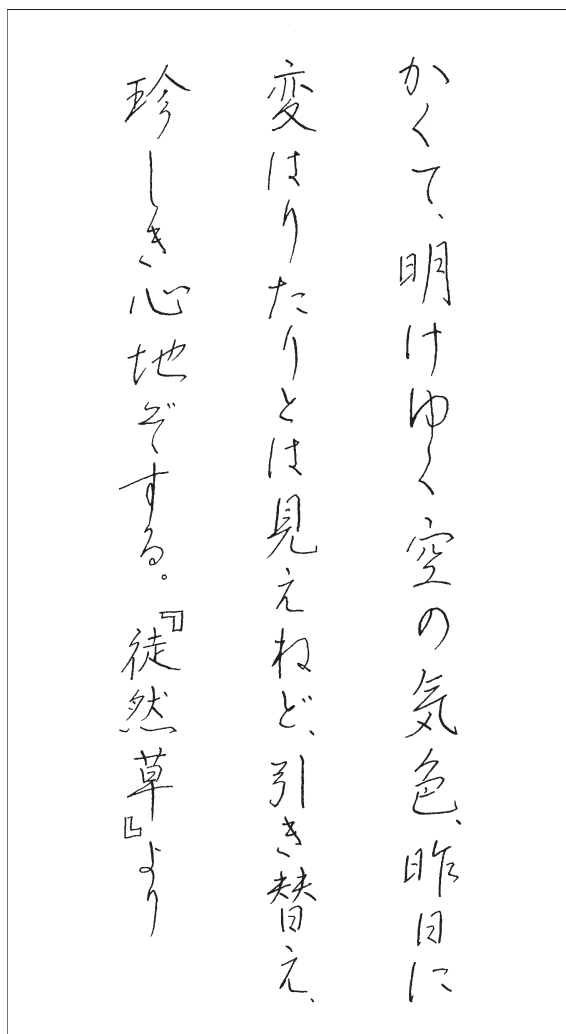 かくて、明けゆく空の気色、昨日に
変はりたりとは見えねど、引き替え、
珍しき心地ぞする。『徒然草』より